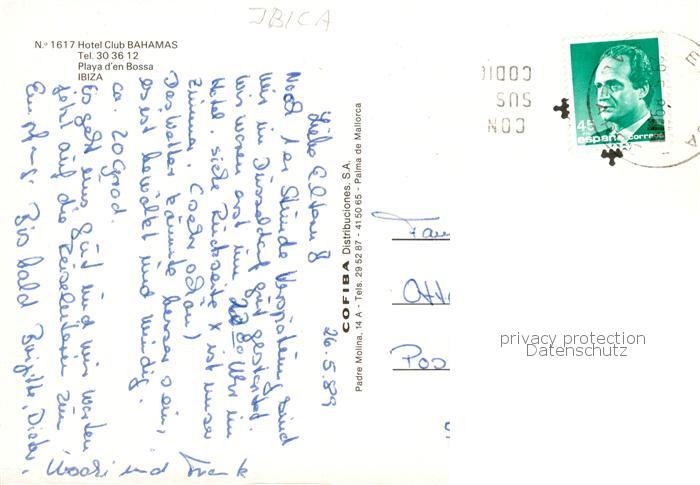 JBICA
N.º 1617 Hotel Club BAHAMAS
Tel. 30 36 12
Playa d'en Bossa
IBIZA
26.5.89
Liebe Eltern!
Nach 1 er Stunde Verspätung sind
wir in Düsseldorf gut gestartet.
Wir waren erst um 22.00 Uhr im
Hotel, siehe Rückseite X ist unser
Zimmer. (sehr schön)
Das Wetter könnte besser sein,
es ist bewölkt und windig,
ca. 20 Grad.
Es geht uns gut und wir warten
jetzt auf die Reiseleiterin zum
Empfang. Bis bald Brigitte, Dieter,
und Frank
COFIBA Distribuciones, S.A.
Padre Molina, 14 A - Tels. 29 52 87 - 41 50 65 - Palma de Mallorca
CODIG
SUS
CON
45
españa correos
Fam
Otto
Pos
privacy protection
Datenschutz